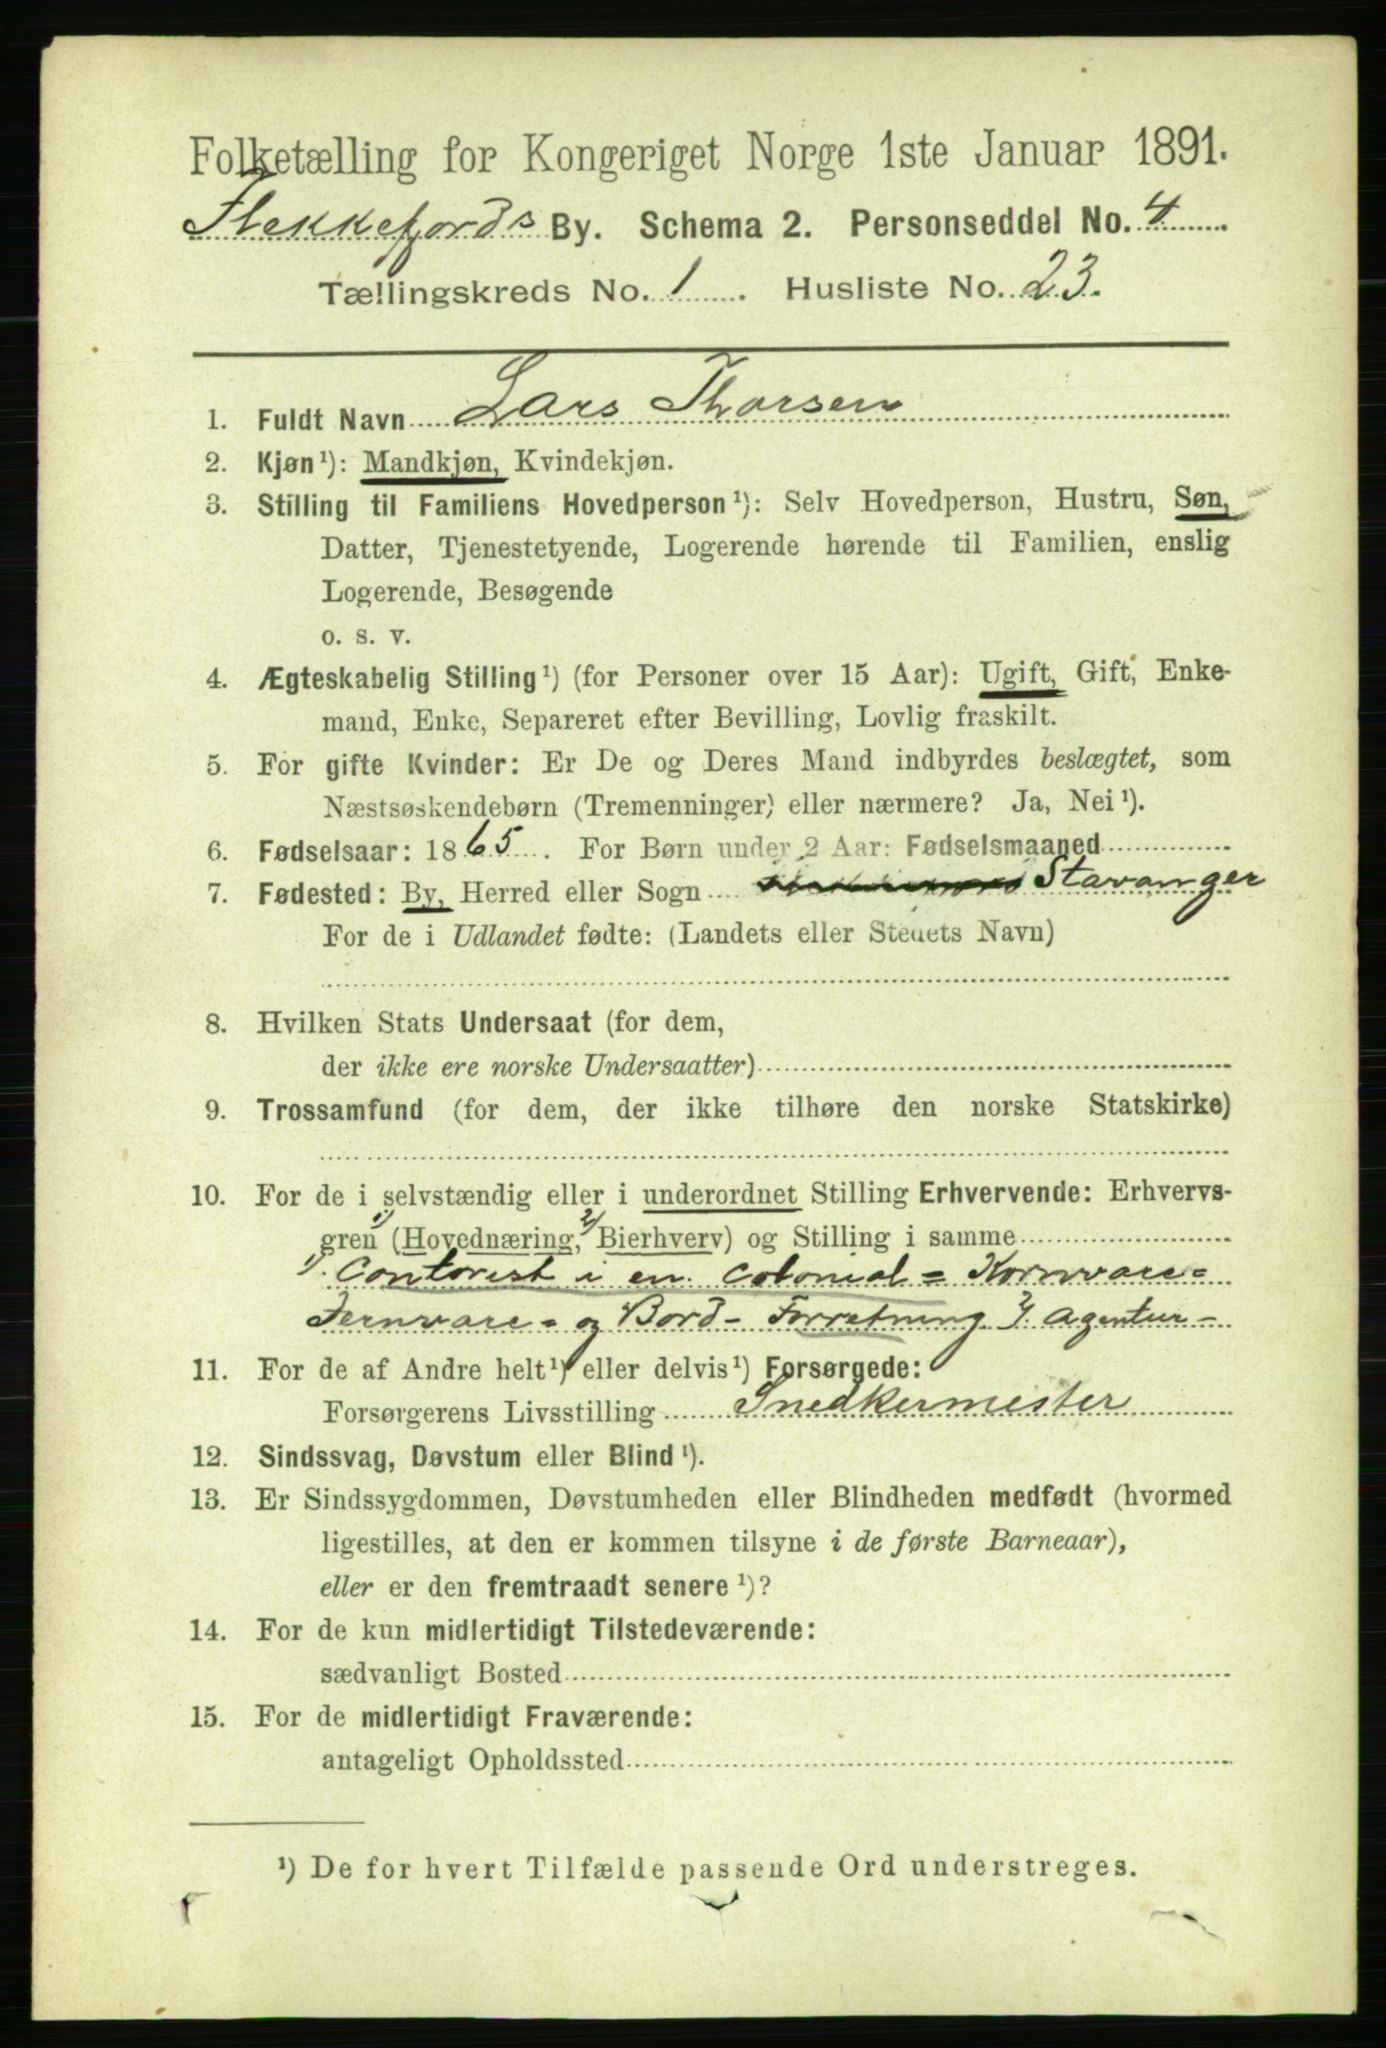 Folketælling for Kongeriget Norge 1ste Januar 1891.
Flekkefjords By. Schema 2. Personseddel No. 4
Tællingskreds No. 1. Husliste No. 23.
1. Fuldt Navn Lars Thorsen
2. Kjøn¹): Mandkjøn, Kvindekjøn.
3. Stilling til Familiens Hovedperson¹): Selv Hovedperson, Hustru, Søn,
Datter, Tjenestetyende, Logerende hørende til Familien, enslig
Logerende, Besøgende
o. s. v.
4. Ægteskabelig Stilling¹) (for Personer over 15 Aar): Ugift, Gift, Enke-
mand, Enke, Separeret efter Bevilling, Lovlig fraskilt.
5. For gifte Kvinder: Er De og Deres Mand indbyrdes beslægtet, som
Næstsøskendebørn (Tremenninger) eller nærmere? Ja, Nei¹).
6. Fødselsaar: 1865. For Børn under 2 Aar: Fødselsmaaned
7. Fødested: By, Herred eller Sogn Stavanger
For de i Udlandet fødte: (Landets eller Stedets Navn)
8. Hvilken Stats Undersaat (for dem,
der ikke ere norske Undersaatter)
9. Trossamfund (for dem, der ikke tilhøre den norske Statskirke)
10. For de i selvstændig eller i underordnet Stilling Erhvervende: Erhvervs-
gren 1) (Hovednæring, 2) Bierhverv) og Stilling i samme
1). Contorist i en Colonial= Kornvare=
Jernvare= og Bord- Forretning 2). Agentur-
11. For de af Andre helt¹) eller delvis¹) Forsørgede:
Forsørgerens Livsstilling Snedkermester
12. Sindssvag, Døvstum eller Blind¹).
13. Er Sindssygdommen, Døvstumheden eller Blindheden medfødt (hvormed
ligestilles, at den er kommen tilsyne i de første Barneaar),
eller er den fremtraadt senere¹)?
14. For de kun midlertidigt Tilstedeværende:
sædvanligt Bosted
15. For de midlertidigt Fraværende:
antageligt Opholdssted
¹) De for hvert Tilfælde passende Ord understreges.